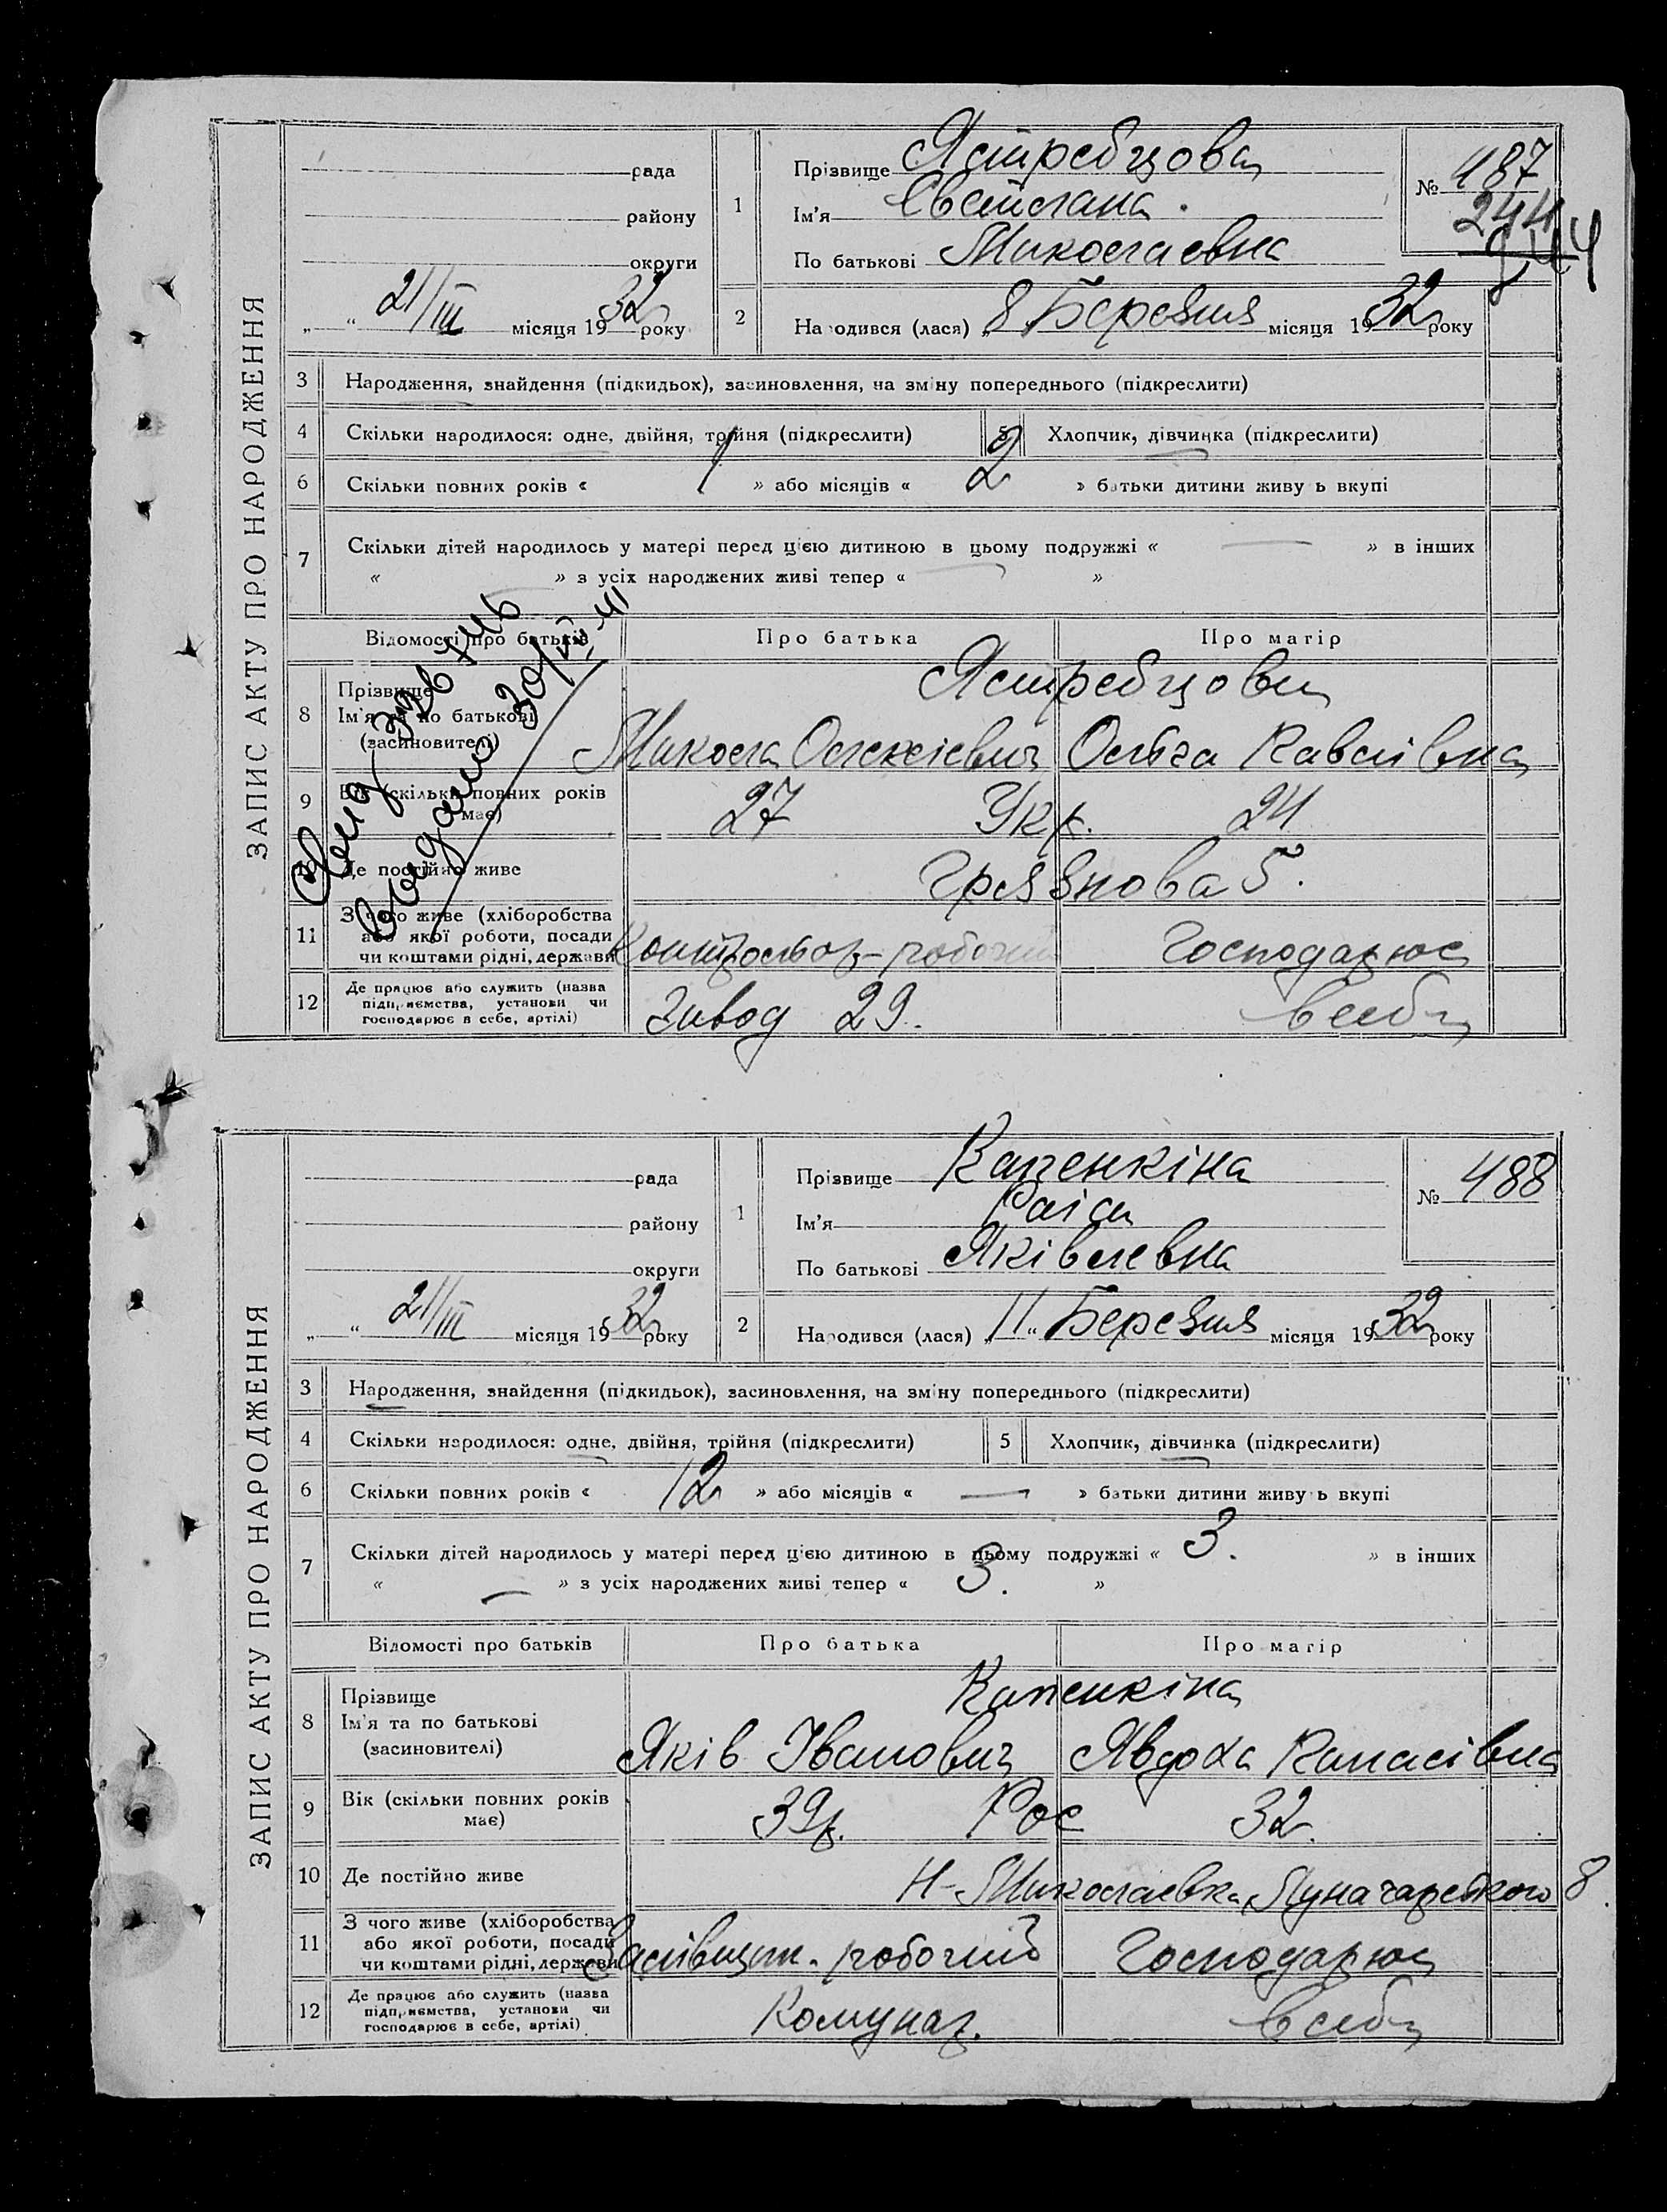 ЗАПИС АКТУ ПРО НАРОДЖЕННЯ
рада
району
округи
„ “ 21/III місяця 1932 року
1
Прізвище Ястребцова
Ім'я Світлана.
По батькові Миколаевна
№ 487
244
244
2
Народився (лася) „8 Березня місяця 1932 року
3 Народження, знайдення (підкидьох), засиновлення, на зміну попереднього (підкреслити)
4 Скільки народилося: одне, двійня, трійня (підкреслити)
5 Хлопчик, дівчинка (підкреслити)
6 Скільки повних років « 1 » або місяців « 2 » батьки дитини живуть вкупі
7 Скільки дітей народилось у матері перед цією дитиною в цьому подружжі « — » в інших
« — » з усіх народжених живі тепер « — »
Відомості про батьків
Про батька
Про матір
8 Прізвище
Ім'я та по батькові
(засиновителі)
Ястребцови
Микола Олексієвич
Ольга Савліївна
9 Вік (скільки повних років має)
27 Укр. 24
10 Де постійно живе
Грязнова 5.
11 З чого живе (хліборобства
або якої роботи, посади
чи коштами рідні, держави
Контрольор-робочий
Господарює
12 Де працює або служить (назва
підприємства, установи чи
господарює в себе, артілі)
Завод 29.
в себе
ЗАПИС АКТУ ПРО НАРОДЖЕННЯ
рада
району
округи
„ “ 21/III місяця 1932 року
1
Прізвище Капенкіна
Ім'я Раіса
По батькові Яківлевна
№ 488
2
Народився (лася) „11“ Березня місяця 1932 року
3 Народження, знайдення (підкидьок), засиновлення, на зміну попереднього (підкреслити)
4 Скільки народилося: одне, двійня, трійня (підкреслити)
5 Хлопчик, дівчинка (підкреслити)
6 Скільки повних років « 12 » або місяців « — » батьки дитини живуть вкупі
7 Скільки дітей народилось у матері перед цією дитиною в цьому подружжі « 3. » в інших
« — » з усіх народжених живі тепер « 3. »
Відомості про батьків
Про батька
Про матір
8 Прізвище
Ім'я та по батькові
(засиновителі)
Капенкіна
Яків Іванович
Явдоха Панасівна
9 Вік (скільки повних років має)
39р. Рос 32.
10 Де постійно живе
Н-Миколаевка, Луначарського 8.
11 З чого живе (хліборобства
або якої роботи, посади
чи коштами рідні, держави
робочий
Господарює
12 Де працює або служить (назва
підприємства, установи чи
господарює в себе, артілі)
Комунар.
в себе